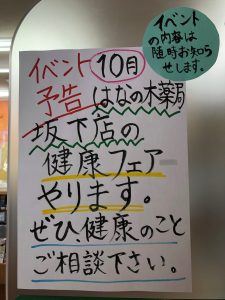 イベント
の内容は
随時お知ら
せします。
イベント 10月
予告 はなの木薬局
坂下店の
健康フェアー
やります。
ぜひ、健康のこと
ご相談下さい。